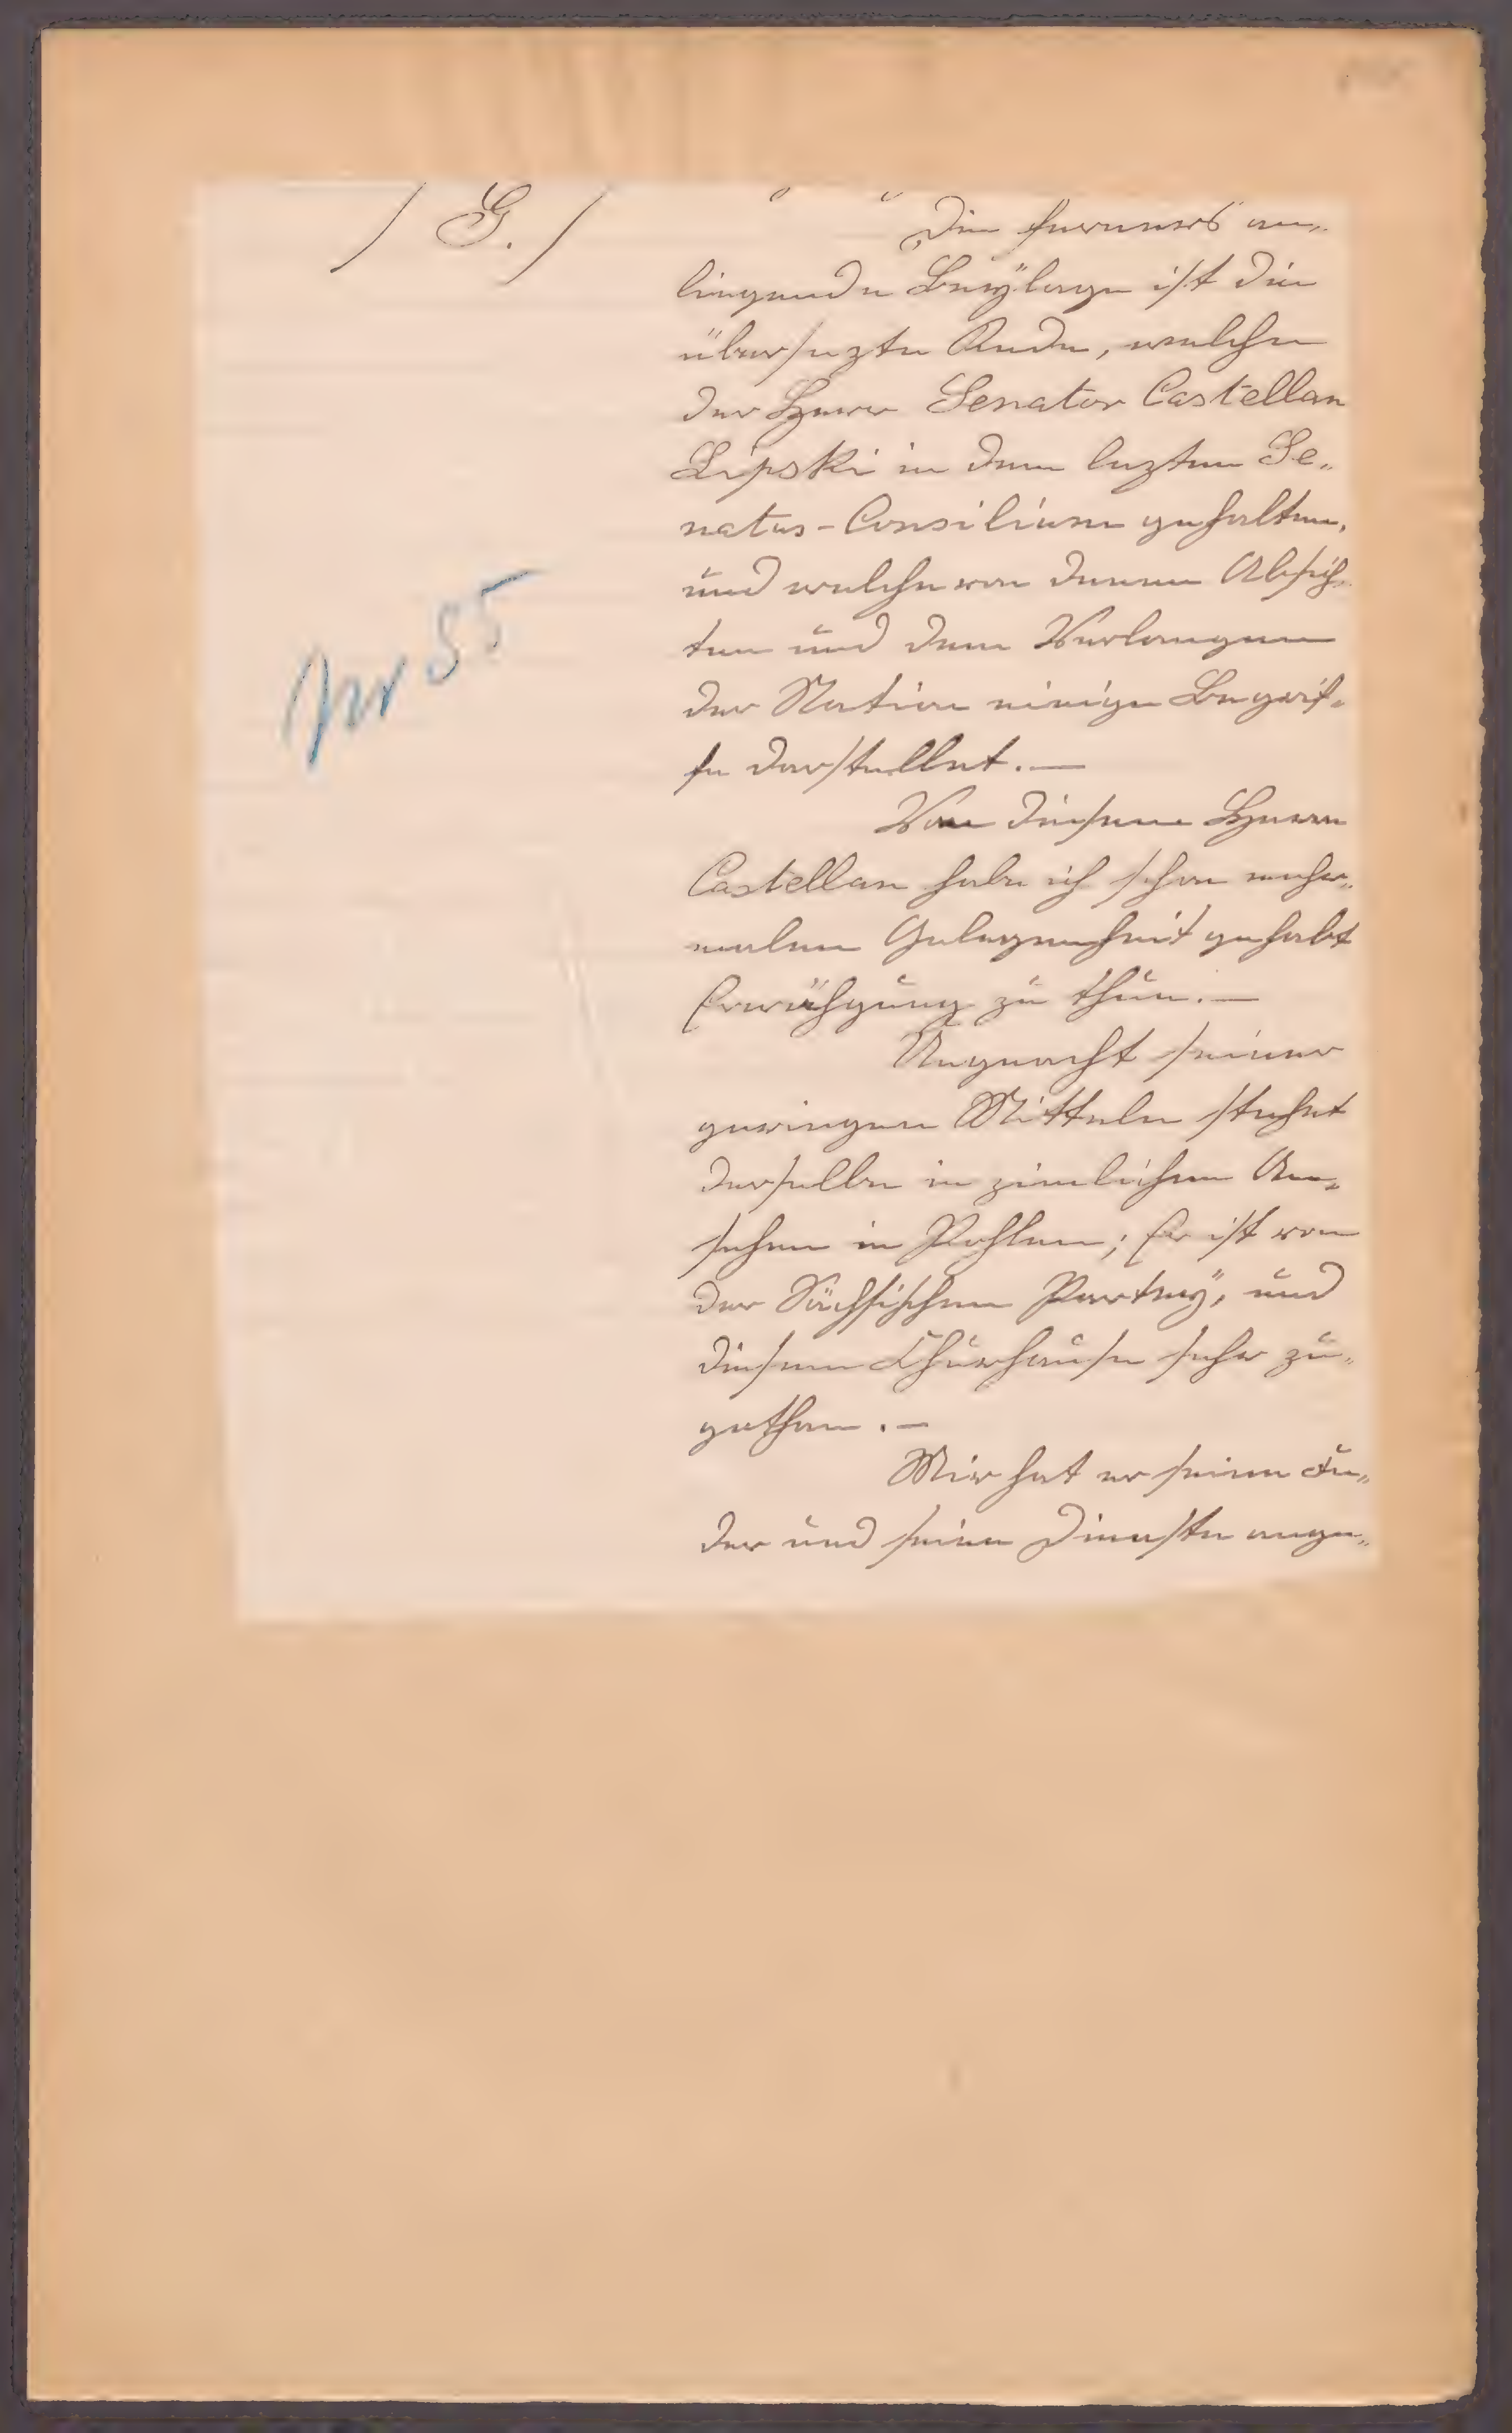 / G. /
Die fernners an„
liegende Beÿlage ist die
übersezte Rede, welche
der Herr Senator Castellan
Lipski in dem lezten Se„
natus-Consilium gehalten,
und welche von denen Absich„
ten und dem Verlangen
der Nation einige Begrif„
fe darstellet.—
Nr 55
Von diesem Herrn
Castellan habe ich schon mehr„
malen Gelegenheit gehabt
Erwähgung zu thun.—
Ungeacht seiner
geringen Mitteln stehet
derselbe in zimlichem An„
sehen in Pohlen; Er ist von
der Sächsischen Parteÿ, und
diesem Churhause sehr zu„
gethan.—
Mir hat er seine
der und seine Dienste ange„